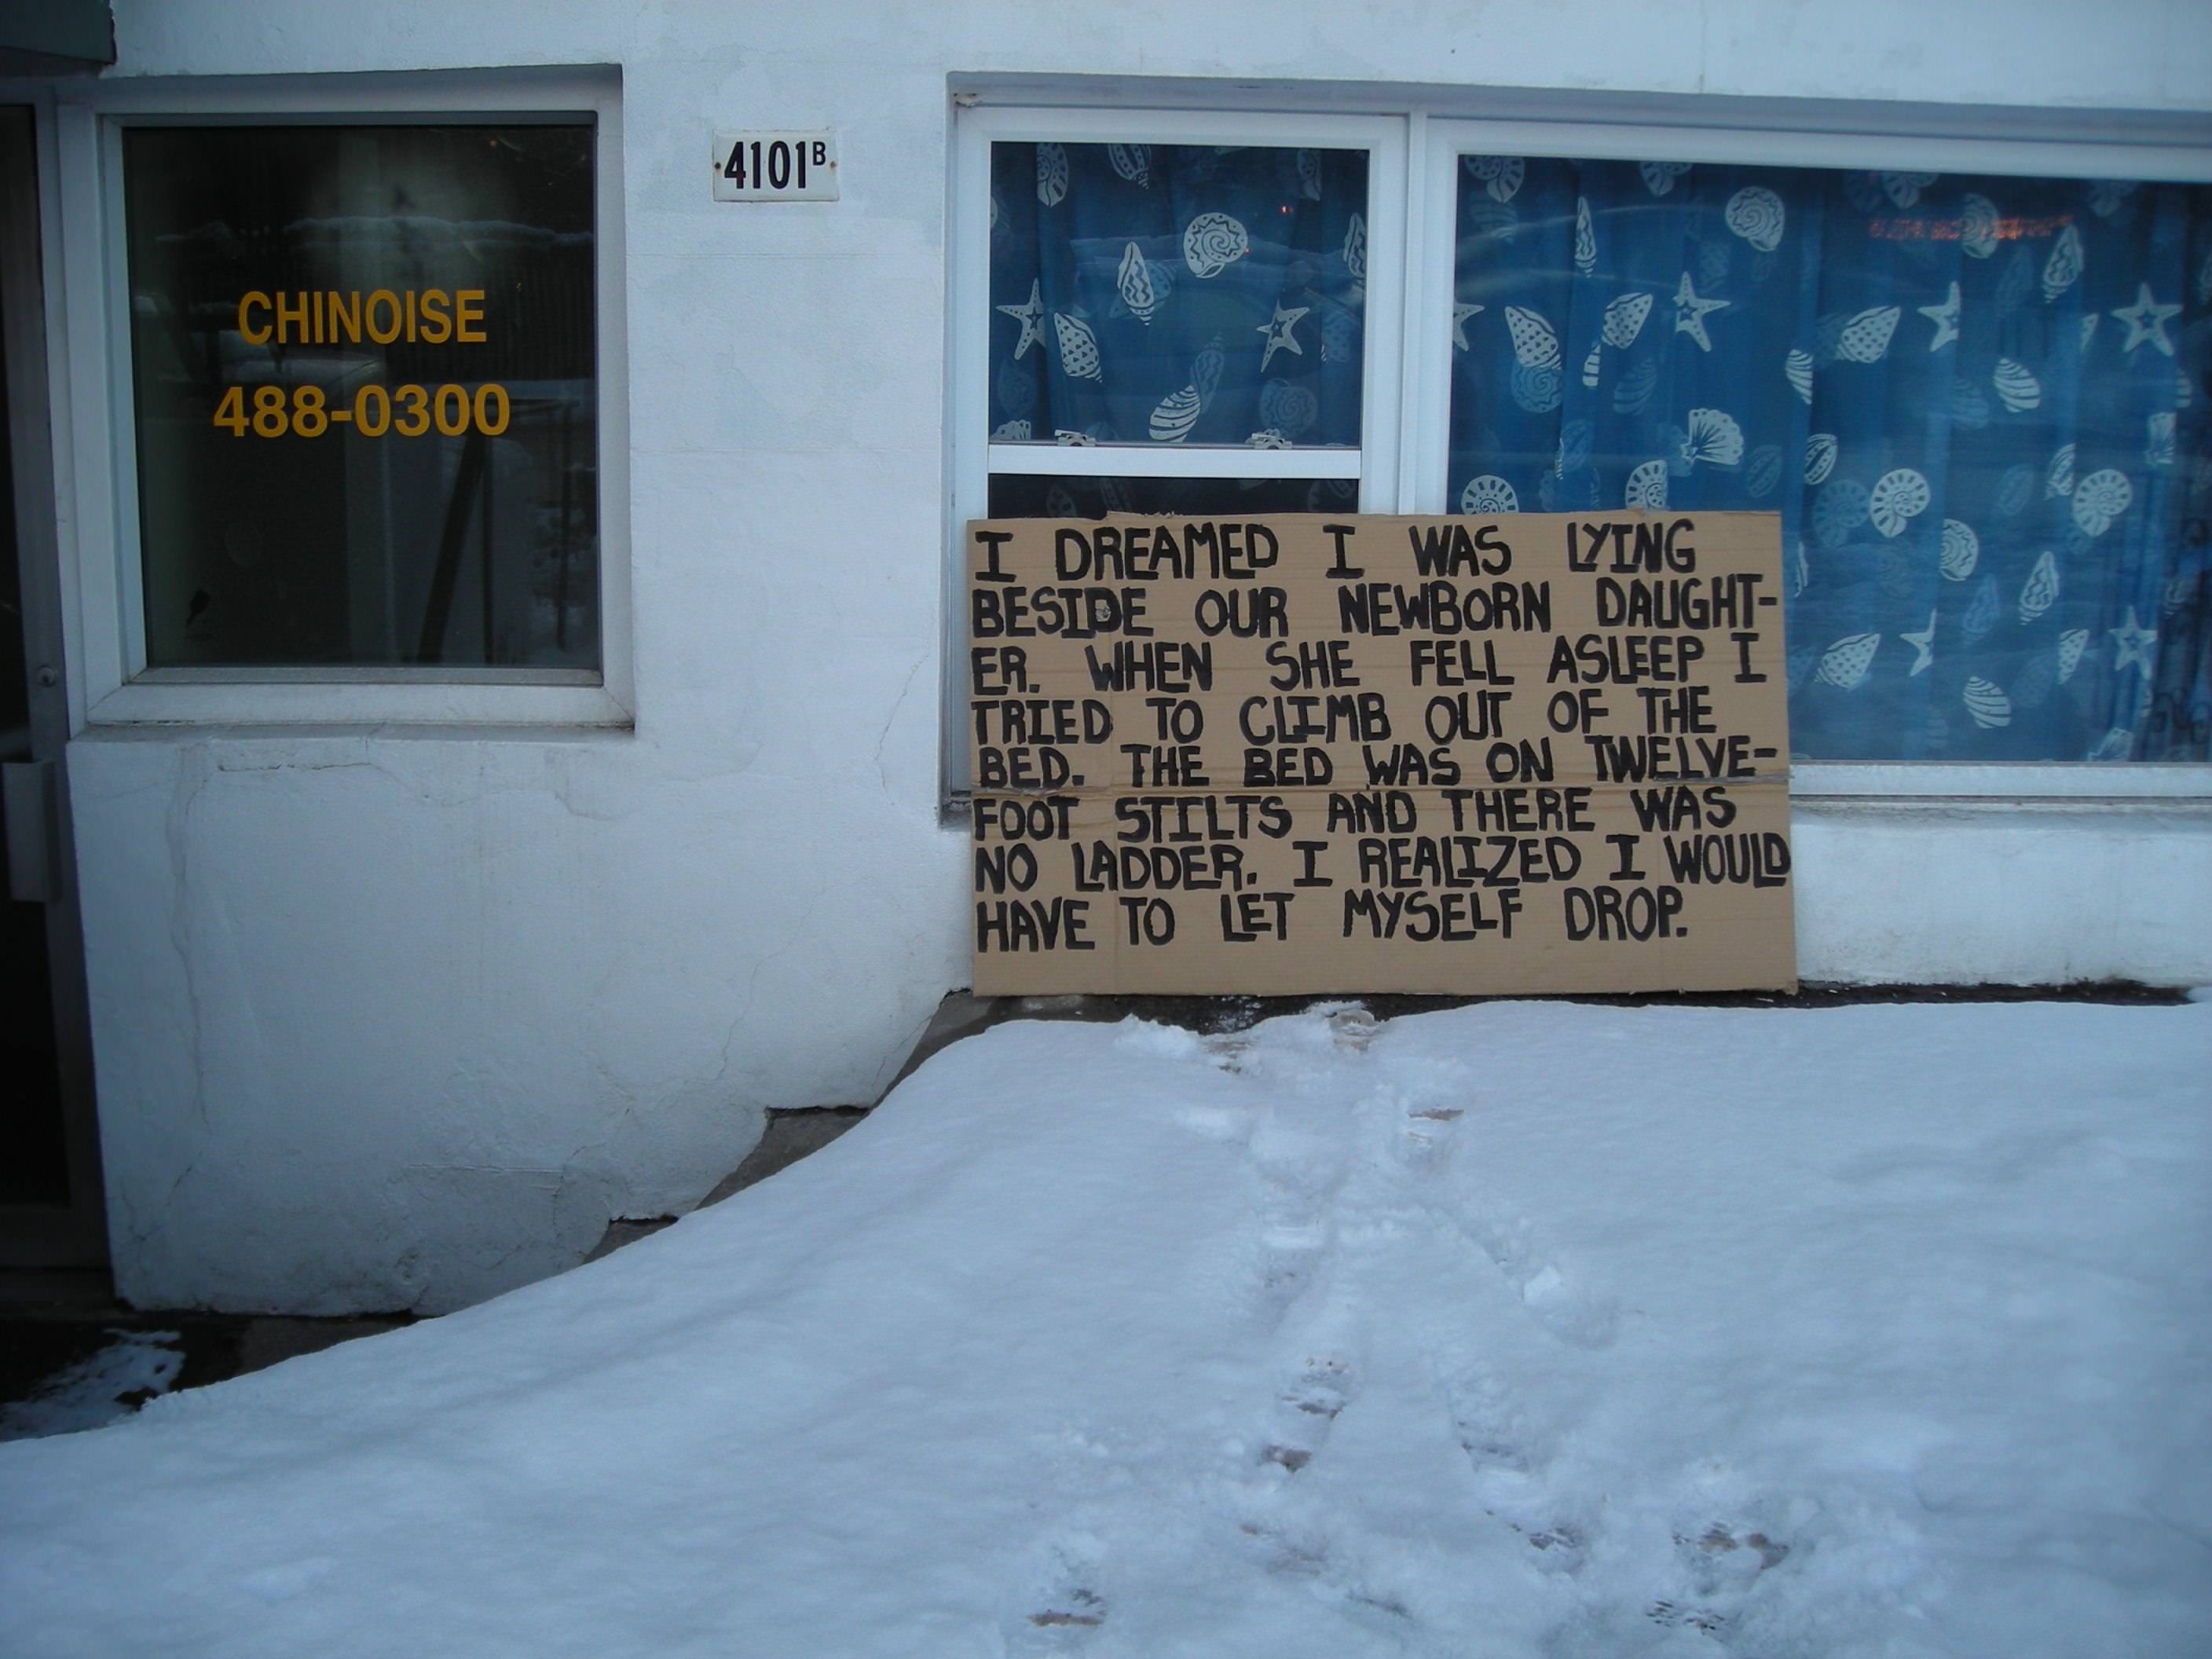 CHINOISE
488-0300
4101B
I DREAMED I WAS LYING
BESIDE OUR NEWBORN DAUGHT-
ER. WHEN SHE FELL ASLEEP I
TRIED TO CLIMB OUT OF THE
BED. THE BED WAS ON TWELVE-
FOOT STILTS AND THERE WAS
NO LADDER. I REALIZED I WOULD
HAVE TO LET MYSELF DROP.